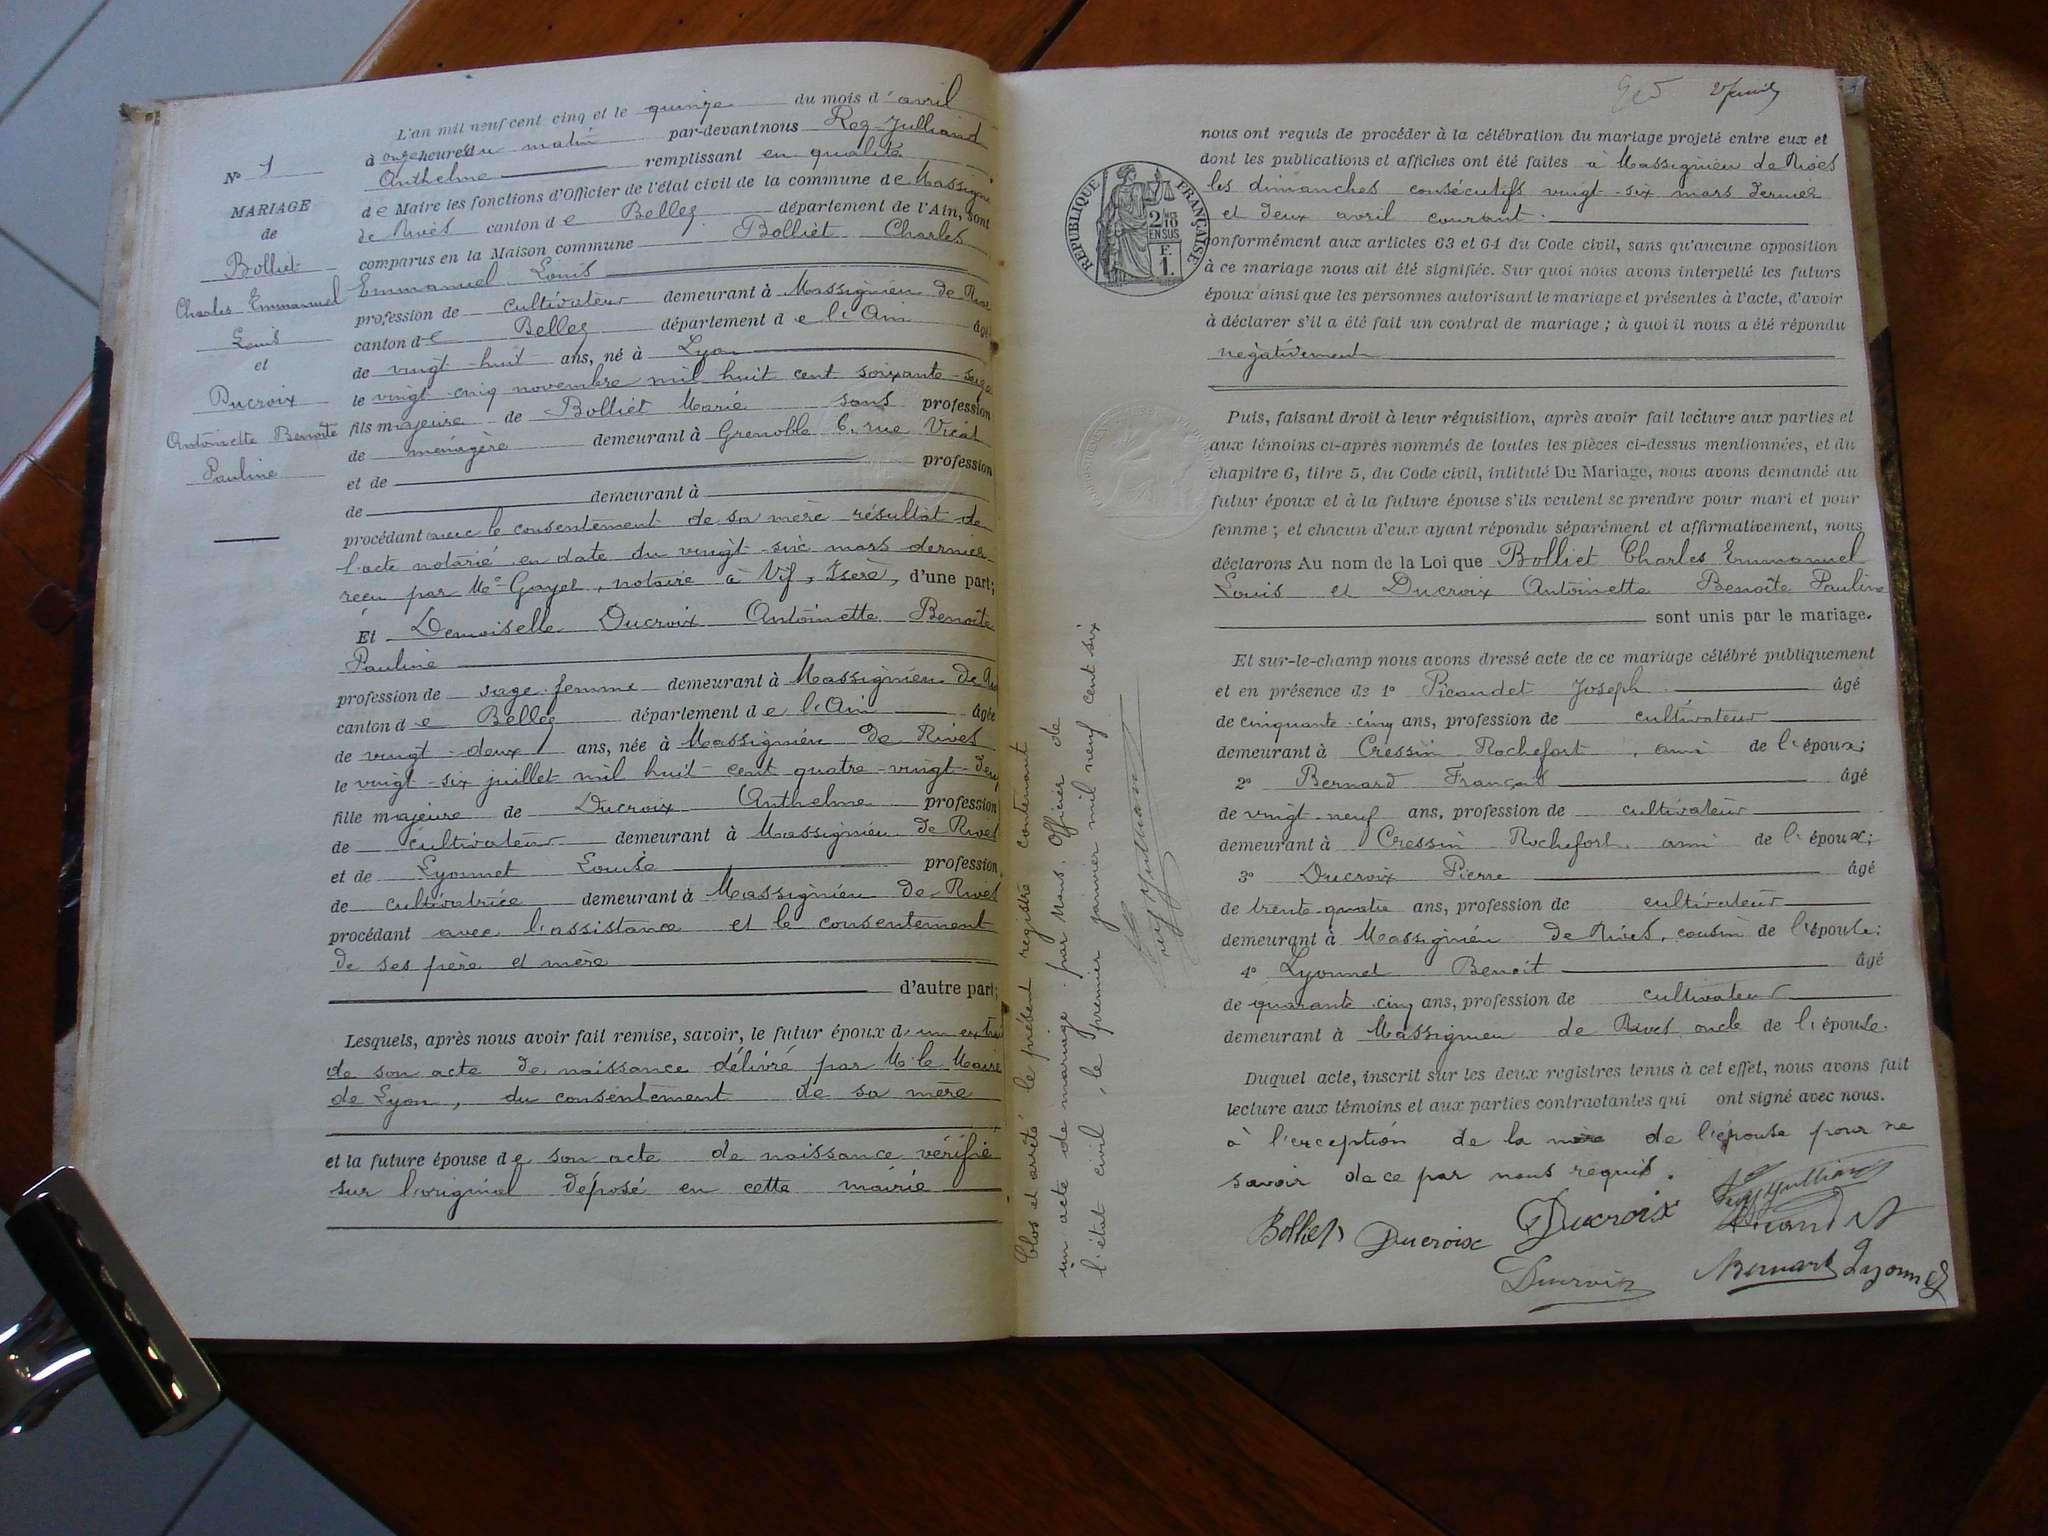 N° 1
MARIAGE
de
Bolliet
Charles Emmanuel
Louis
et
Ducroix
Antoinette Benoîte
Pauline
L'an mil neuf cent cinq et le quinze du mois d'avril
à onze heures du matin par-devant nous Rey-Julliand
Anthelme remplissant en qualité
de Maire les fonctions d'Officier de l'état civil de la commune de Massignieu
de Rives canton de Belley département de l'Ain, sont
comparus en la Maison commune Bolliet Charles
Emmanuel Louis
profession de cultivateur demeurant à Massignieu de Rives
canton de Belley département de l'Ain âgé
de vingt-huit ans, né à Lyon
le vingt-cinq novembre mil huit cent soixante-seize
fils majeure de Bolliet Marie sans profession
de ménagère demeurant à Grenoble 6, rue Vicat
et de profession
de demeurant à
procédant avec le consentement de sa mère résultat de
l'acte notarié en date du vingt-six mars dernier
reçu par Me Gayet, notaire à Vif, Isère, d'une part;
Et Demoiselle Ducroix Antoinette Benoîte
Pauline
profession de sage-femme demeurant à Massignieu de Rives
canton de Belley département de l'Ain âgée
de vingt-deux ans, née à Massignieu de Rives
le vingt-six juillet mil huit cent quatre-vingt-deux
fille majeure de Ducroix Anthelme profession
de cultivateur demeurant à Massignieu de Rives
et de Lyonnet Louise profession
de cultivatrice demeurant à Massignieu de Rives
procédant avec l'assistance et le consentement
de ses père et mère
d'autre part;
Lesquels, après nous avoir fait remise, savoir, le futur époux d'un extrait
de son acte de naissance délivré par M. le Maire
de Lyon, du consentement de sa mère
et la future épouse de son acte de naissance vérifié
sur l'original déposé en cette mairie
Clos et arrêté le présent registre contenant
un acte de mariage par Nous, Officier de
l'état civil, le premier janvier mil neuf cent six
Rey Julliand
RÉPUBLIQUE FRANÇAISE
2/10 EN SUS
F.
1.
nous ont requis de procéder à la célébration du mariage projeté entre eux et
dont les publications et affiches ont été faites à Massignieu de Rives
les dimanches consécutifs vingt-six mars dernier
et deux avril courant.
conformément aux articles 63 et 64 du Code civil, sans qu'aucune opposition
à ce mariage nous ait été signifiée. Sur quoi nous avons interpellé les futurs
époux ainsi que les personnes autorisant le mariage et présentes à l'acte, d'avoir
à déclarer s'il a été fait un contrat de mariage; à quoi il nous a été répondu
négativement
Puis, faisant droit à leur réquisition, après avoir fait lecture aux parties et
aux témoins ci-après nommés de toutes les pièces ci-dessus mentionnées, et du
chapitre 6, titre 5, du Code civil, intitulé Du Mariage, nous avons demandé au
futur époux et à la future épouse s'ils veulent se prendre pour mari et pour
femme; et chacun d'eux ayant répondu séparément et affirmativement, nous
déclarons Au nom de la Loi que Bolliet Charles Emmanuel
Louis et Ducroix Antoinette Benoîte Pauline
sont unis par le mariage.
Et sur-le-champ nous avons dressé acte de ce mariage célébré publiquement
et en présence de 1° Picaudet Joseph âgé
de cinquante-cinq ans, profession de cultivateur
demeurant à Cressin Rochefort, ami de l'époux;
2° Bernard Français âgé
de vingt-neuf ans, profession de cultivateur
demeurant à Cressin Rochefort, ami de l'époux;
3° Ducroix Pierre âgé
de trente-quatre ans, profession de cultivateur
demeurant à Massignieu de Rives, cousin de l'épouse;
4° Lyonnet Benoit âgé
de quarante-cinq ans, profession de cultivateur
demeurant à Massignieu de Rives oncle de l'épouse.
Duquel acte, inscrit sur les deux registres tenus à cet effet, nous avons fait
lecture aux témoins et aux parties contractantes qui ont signé avec nous.
à l'exception de la mère de l'épouse pour ne
savoir de ce par nous requis.
Rey Julliand
Bolliet Ducroix Ducroix Picaudet
Ducroix Bernard Lyonnet